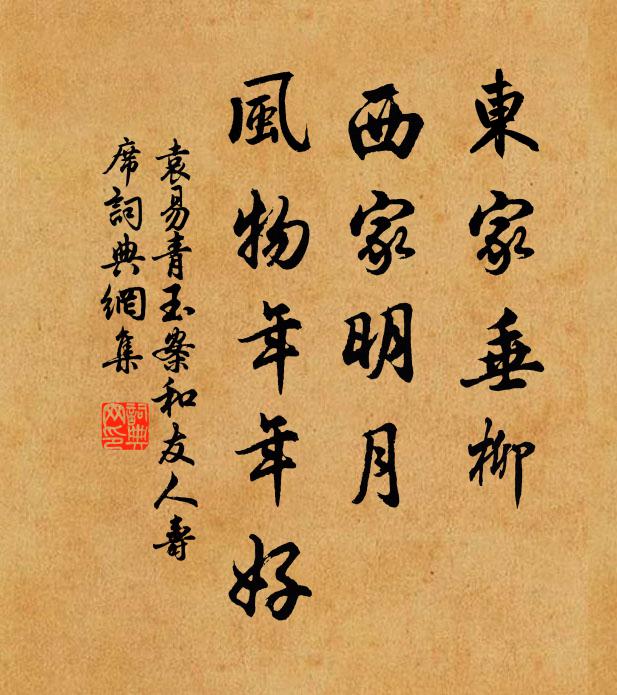 東家垂柳
西家明月
風物年年好
袁易青玉案和友人壽
席詞典網集
詞典網印